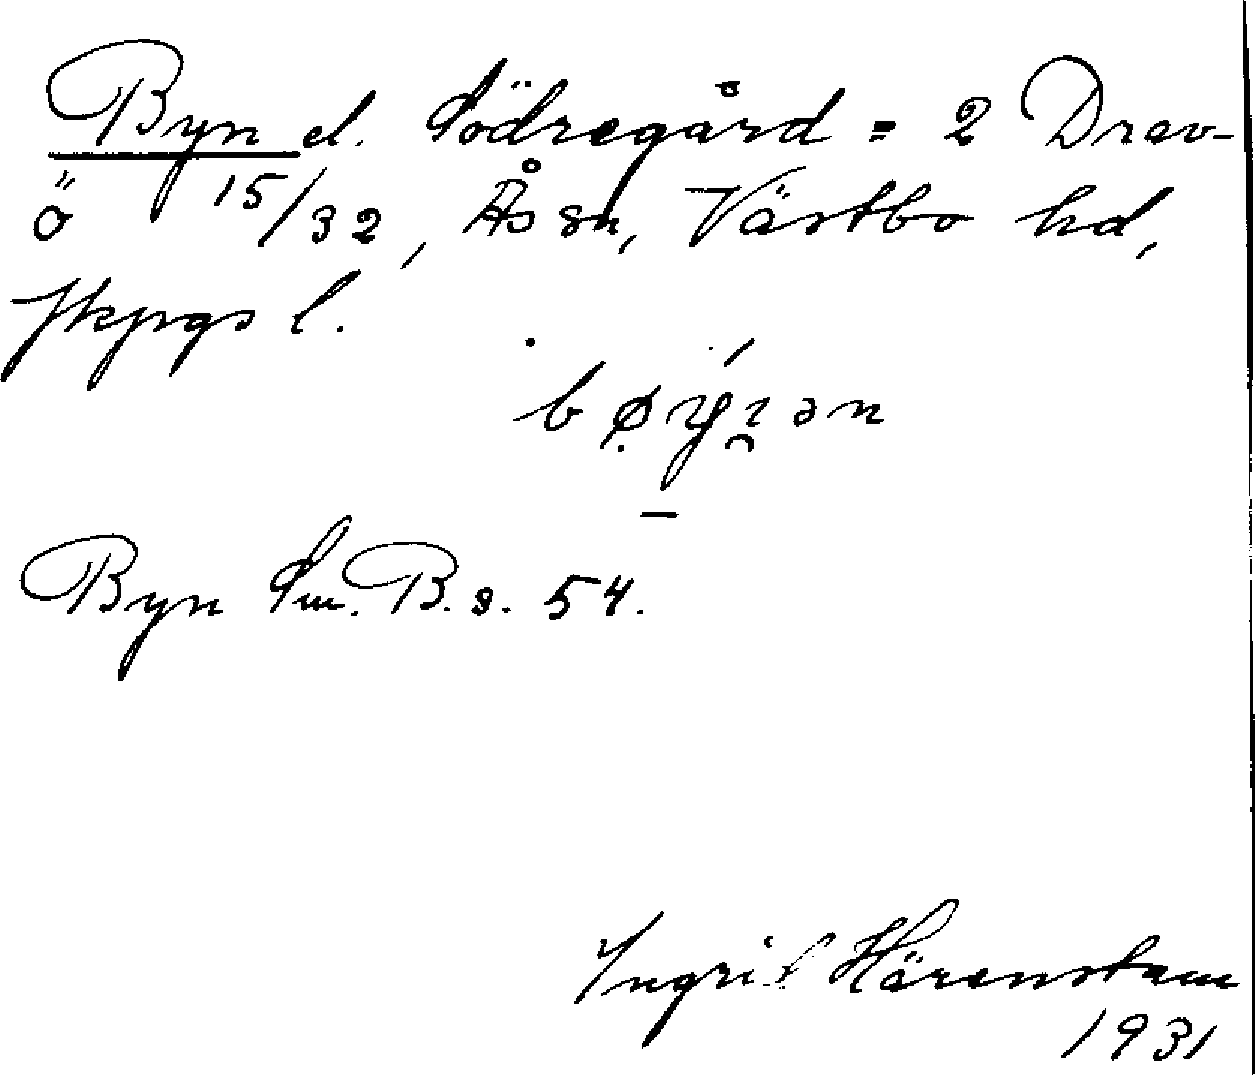 Byn el. Södregård = 2 Drav-
ö 15/32, Ås sn, Västbo hd,
Jkpgs l.
Byn Sm. B. s. 54.
Ingrid Härenstam
1931